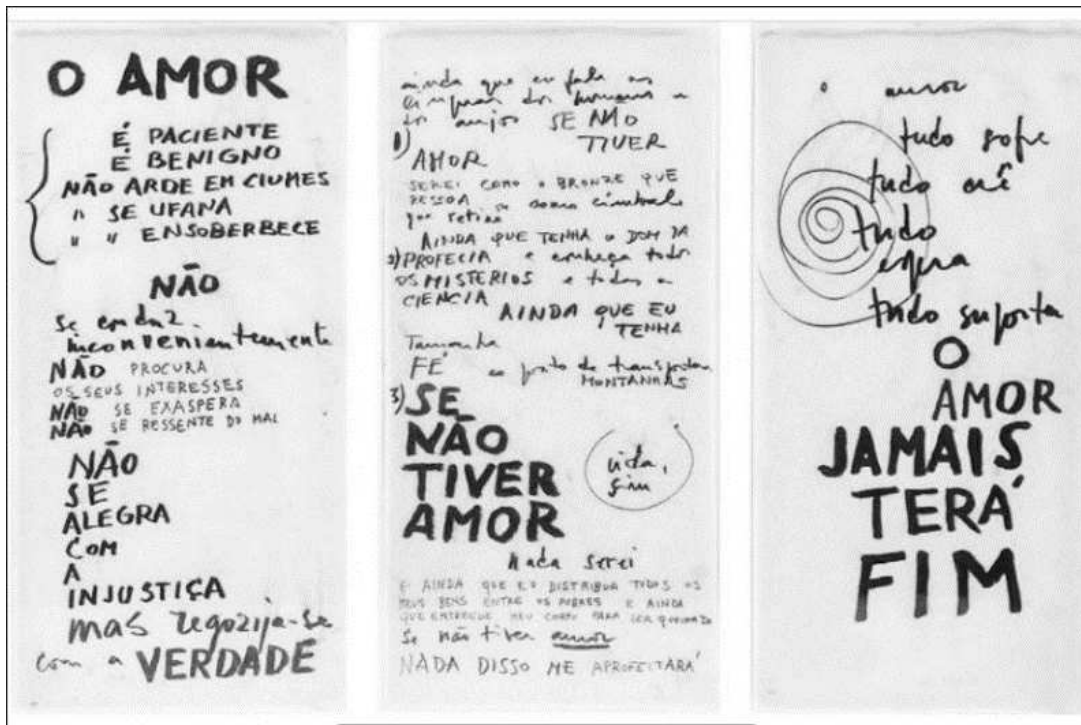 O AMOR
É PACIENTE
É BENIGNO
NÃO ARDE EM CIUMES
" SE UFANA
" " ENSOBERBECE
NÃO
se conduz
inconvenientemente
NÃO PROCURA
OS SEUS INTERESSES
NÃO SE EXASPERA
NÃO SE RESSENTE DO MAL
NÃO
SE
ALEGRA
COM
A
INJUSTIÇA
mas regozija-se
com a VERDADE
ainda que eu fale as
línguas dos humanos e
1) dos anjos SE NÃO
TIVER
AMOR
SEREI COMO O BRONZE QUE
como címbalo
que retine
AINDA QUE TENHA O DOM DA
2) PROFECIA e conheça todos
OS MISTÉRIOS e toda a
CIENCIA
AINDA QUE EU
TENHA
Tamanha
FÉ ao ponto de transportar
MONTANHAS
3) SE
NÃO
TIVER
AMOR
vida,
sim
Nada serei
E AINDA QUE EU DISTRIBUA TODOS OS
MEUS BENS ENTRE OS POBRES E AINDA
QUE ENTREGUE MEU CORPO PARA SER QUEIMADO
Se não tiver amor
NADA DISSO ME APROFEITARÁ
o amor
tudo sofre
tudo crê
tudo
espera
tudo suporta
O
AMOR
JAMAIS
TERÁ
FIM